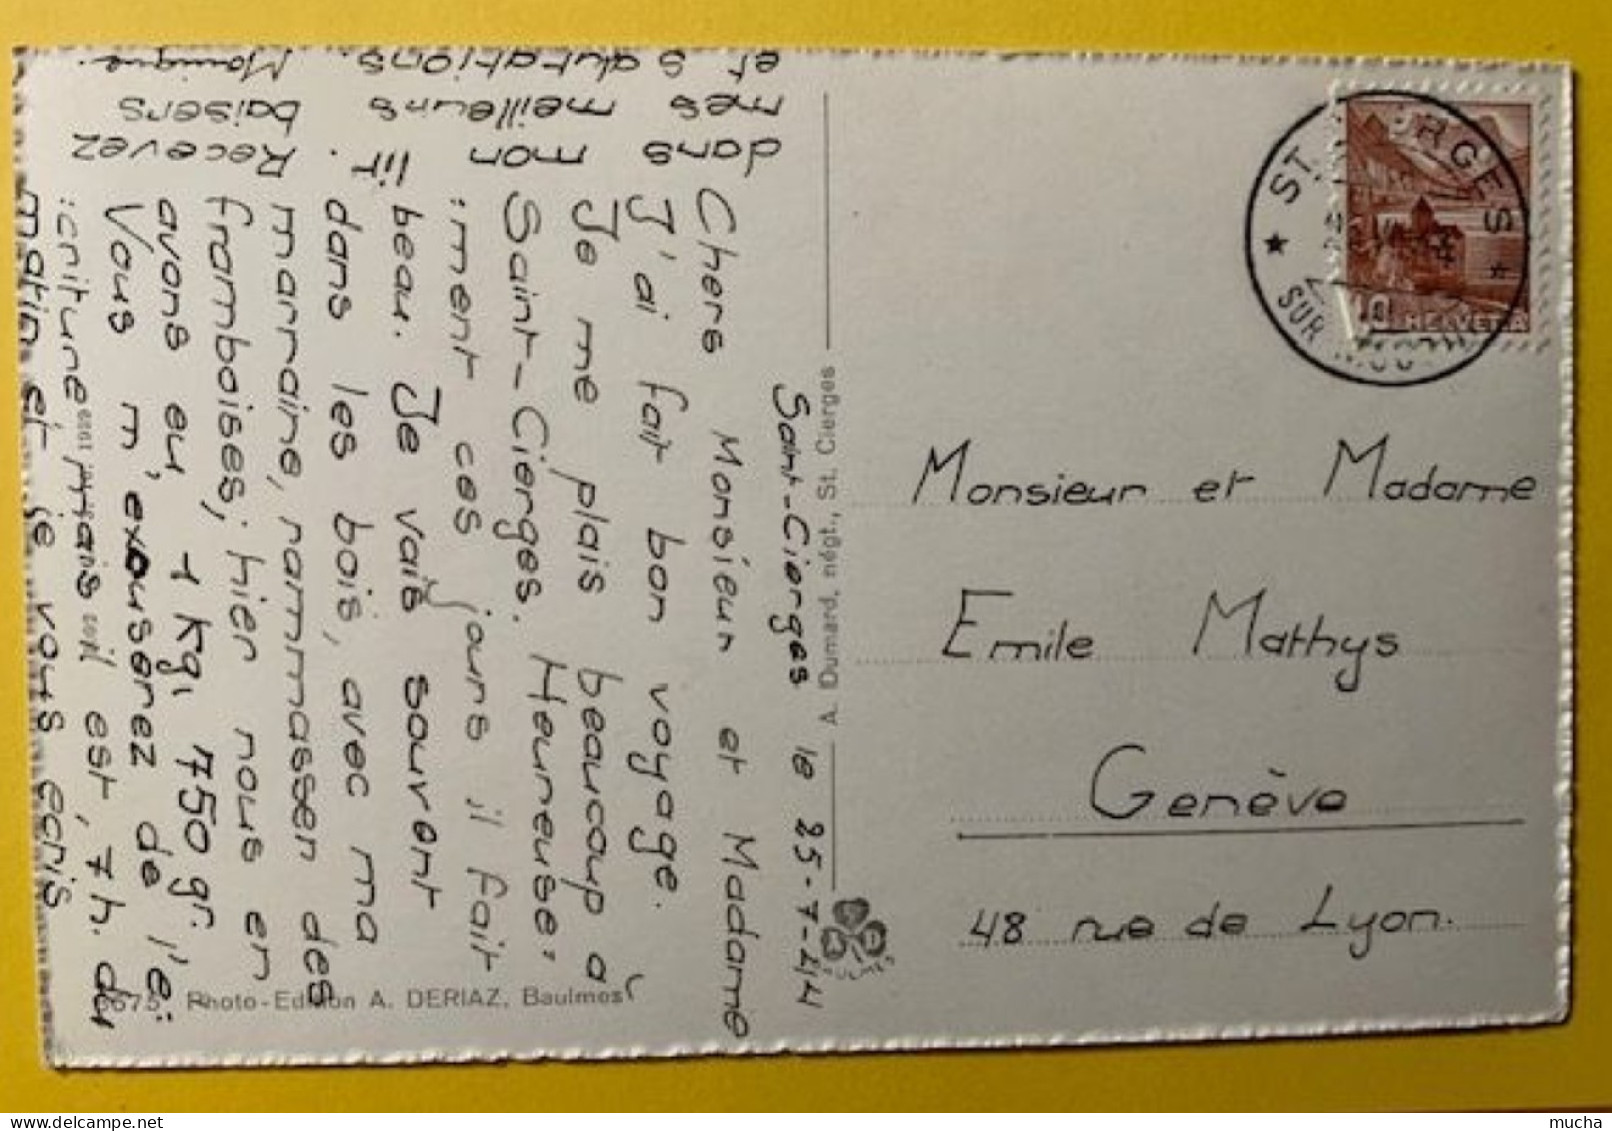 Saint-Cierges le 25-7-44
Chers Monsieur et Madame
J'ai fait bon voyage.
Je me plais beaucoup à
Saint-Cierges. Heureuse:
:ment ces jours il fait
beau. Je vais souvent
dans les bois, avec ma
marraine, rammasser des
framboises; hier nous en
avons eu 1 kg, 750 gr.
Vous m'excuserez de l'é:
:criture mais il est, 7h. du
matin et je vous écris
dans mon lit. Recevez
mes meilleurs baisers
et salutations. Monique.
A. Dumard, négt., St. Cierges
Photo-Edition A. DERIAZ, Baulmes
BAULMES
ST. GES
SUR
10 HELVETIA
Monsieur et Madame
Emile Mathys
Genève
48 rue de Lyon.
mucha